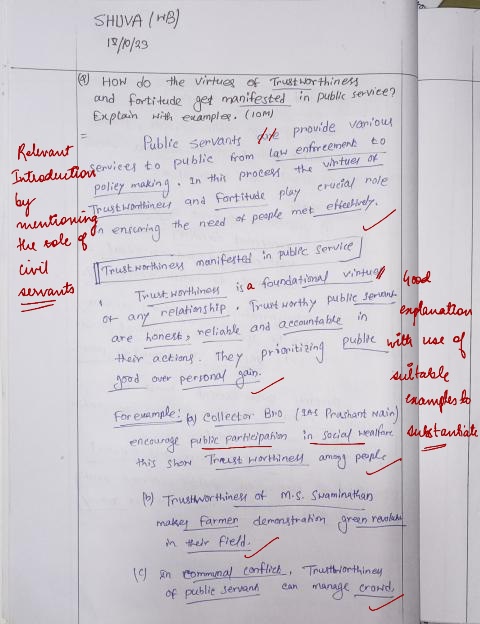 SHUVA (WB)
18/10/23
(Q) How do the virtues of Trustworthiness
and fortitude get manifested in public service?
Explain with examples. (10M)
=
Public servants are provide various
services to public from law enforcement to
policy making. In this process the virtues of
Trustworthiness and fortitude play crucial role
in ensuring the need of people met effectively.
Relevant
Introduction
by
mentioning
the role of
civil
servants
Trustworthiness manifested in public service
Trustworthiness is a foundational virtue
of any relationship. Trustworthy public servant
are honest, reliable and accountable in
their actions. They prioritizing public
good over personal gain.
Good
explanation
with use of
suitable
examples to
substantiate
For example: (a) Collector Bro (IAS Prashant Nair)
encourage public participation in social welfare
this show Trust worthiness among people
(b) Trustworthiness of M.S. Swaminathan
makes farmer demonstration green revoluti
in their field.
(c) In communal conflict, Trustworthiness
of public servant can manage crowd.